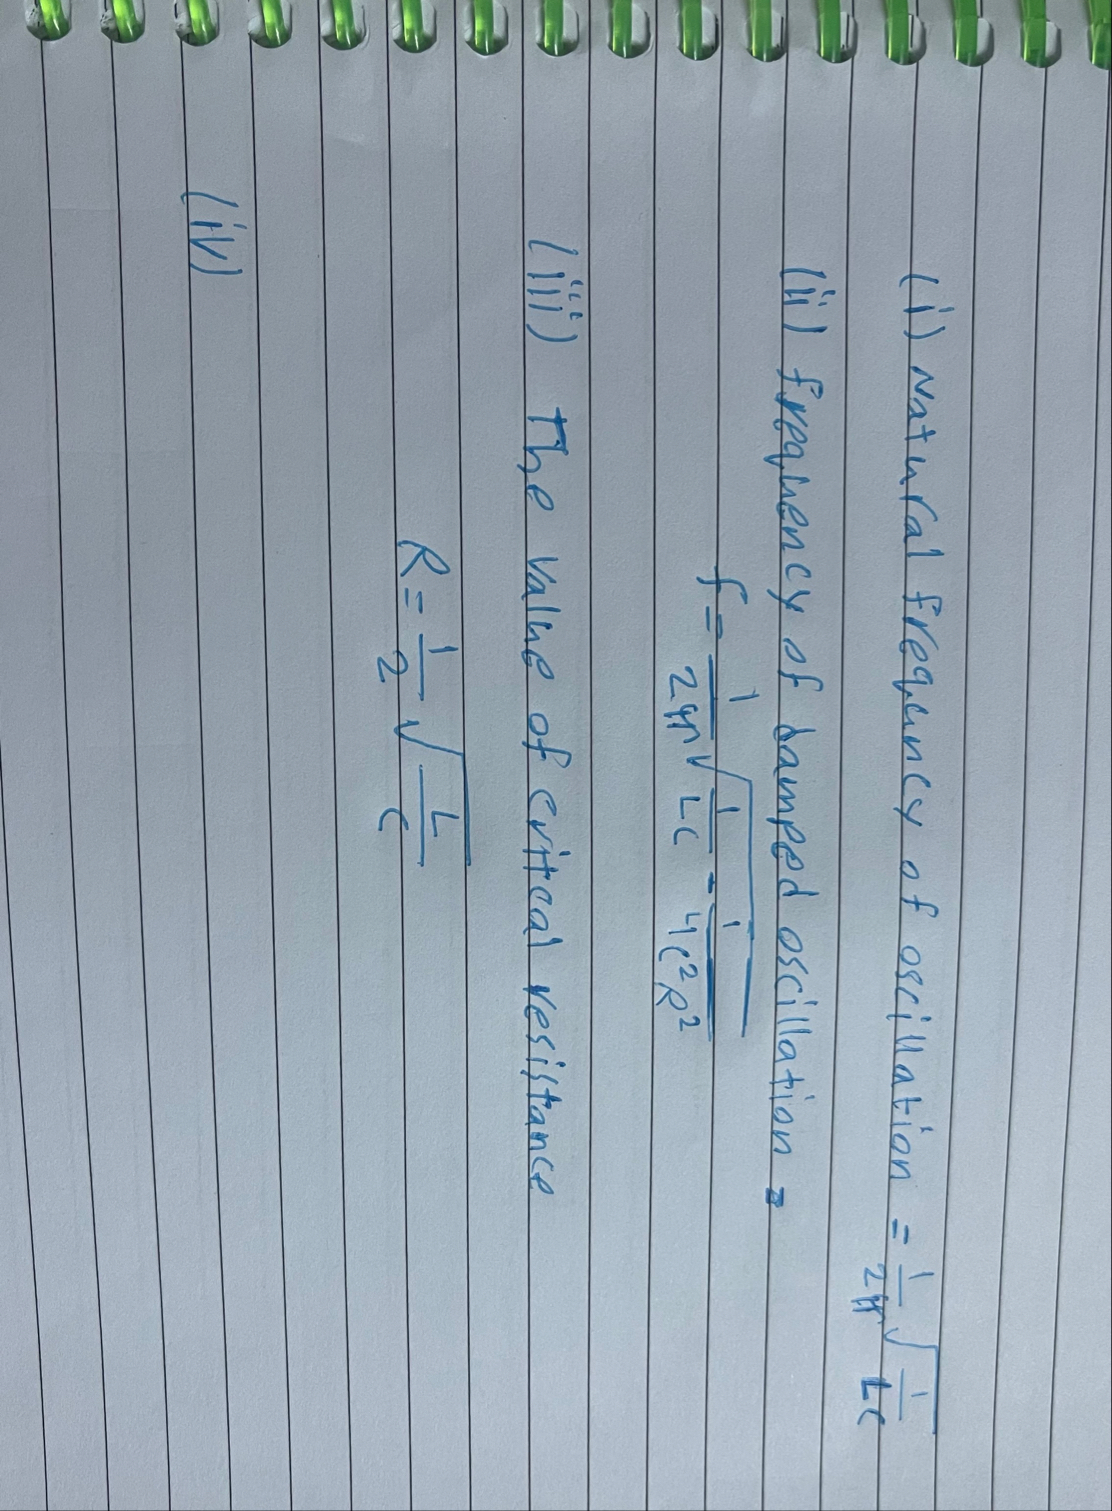 (i) Natural frequency of oscillation = 1/2π √(1/LC)
(ii) frequency of damped oscillation =
f = 1/2π √(1/LC - 1/4C²R²)
(iii) The value of critcal resistance
R = 1/2 √(L/C)
(iv)